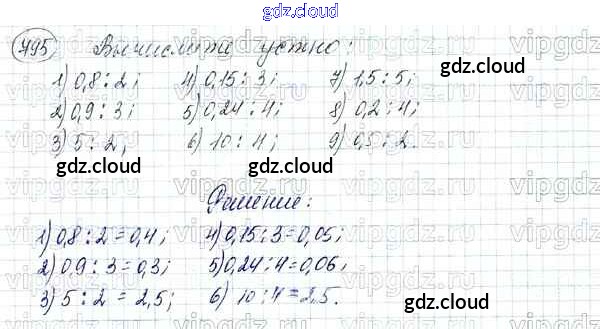 gdz.cloud
795 Вычислите устно:
gdz.cloud
1) 0,8 : 2; 4) 0,15 : 3; 7) 1,5 : 5;
2) 0,9 : 3; 5) 0,24 : 4; 8) 0,2 : 4;
3) 5 : 2, 6) 10 : 4; 9) 0,5 : 2.
gdz.cloud gdz.cloud gdz.cloud
Решение:
1) 0,8 : 2 = 0,4; 4) 0,15 : 3 = 0,05;
2) 0,9 : 3 = 0,3; 5) 0,24 : 4 = 0,06,
3) 5 : 2 = 2,5; 6) 10 : 4 = 2,5.
gdz.cloud
gdz.cloud